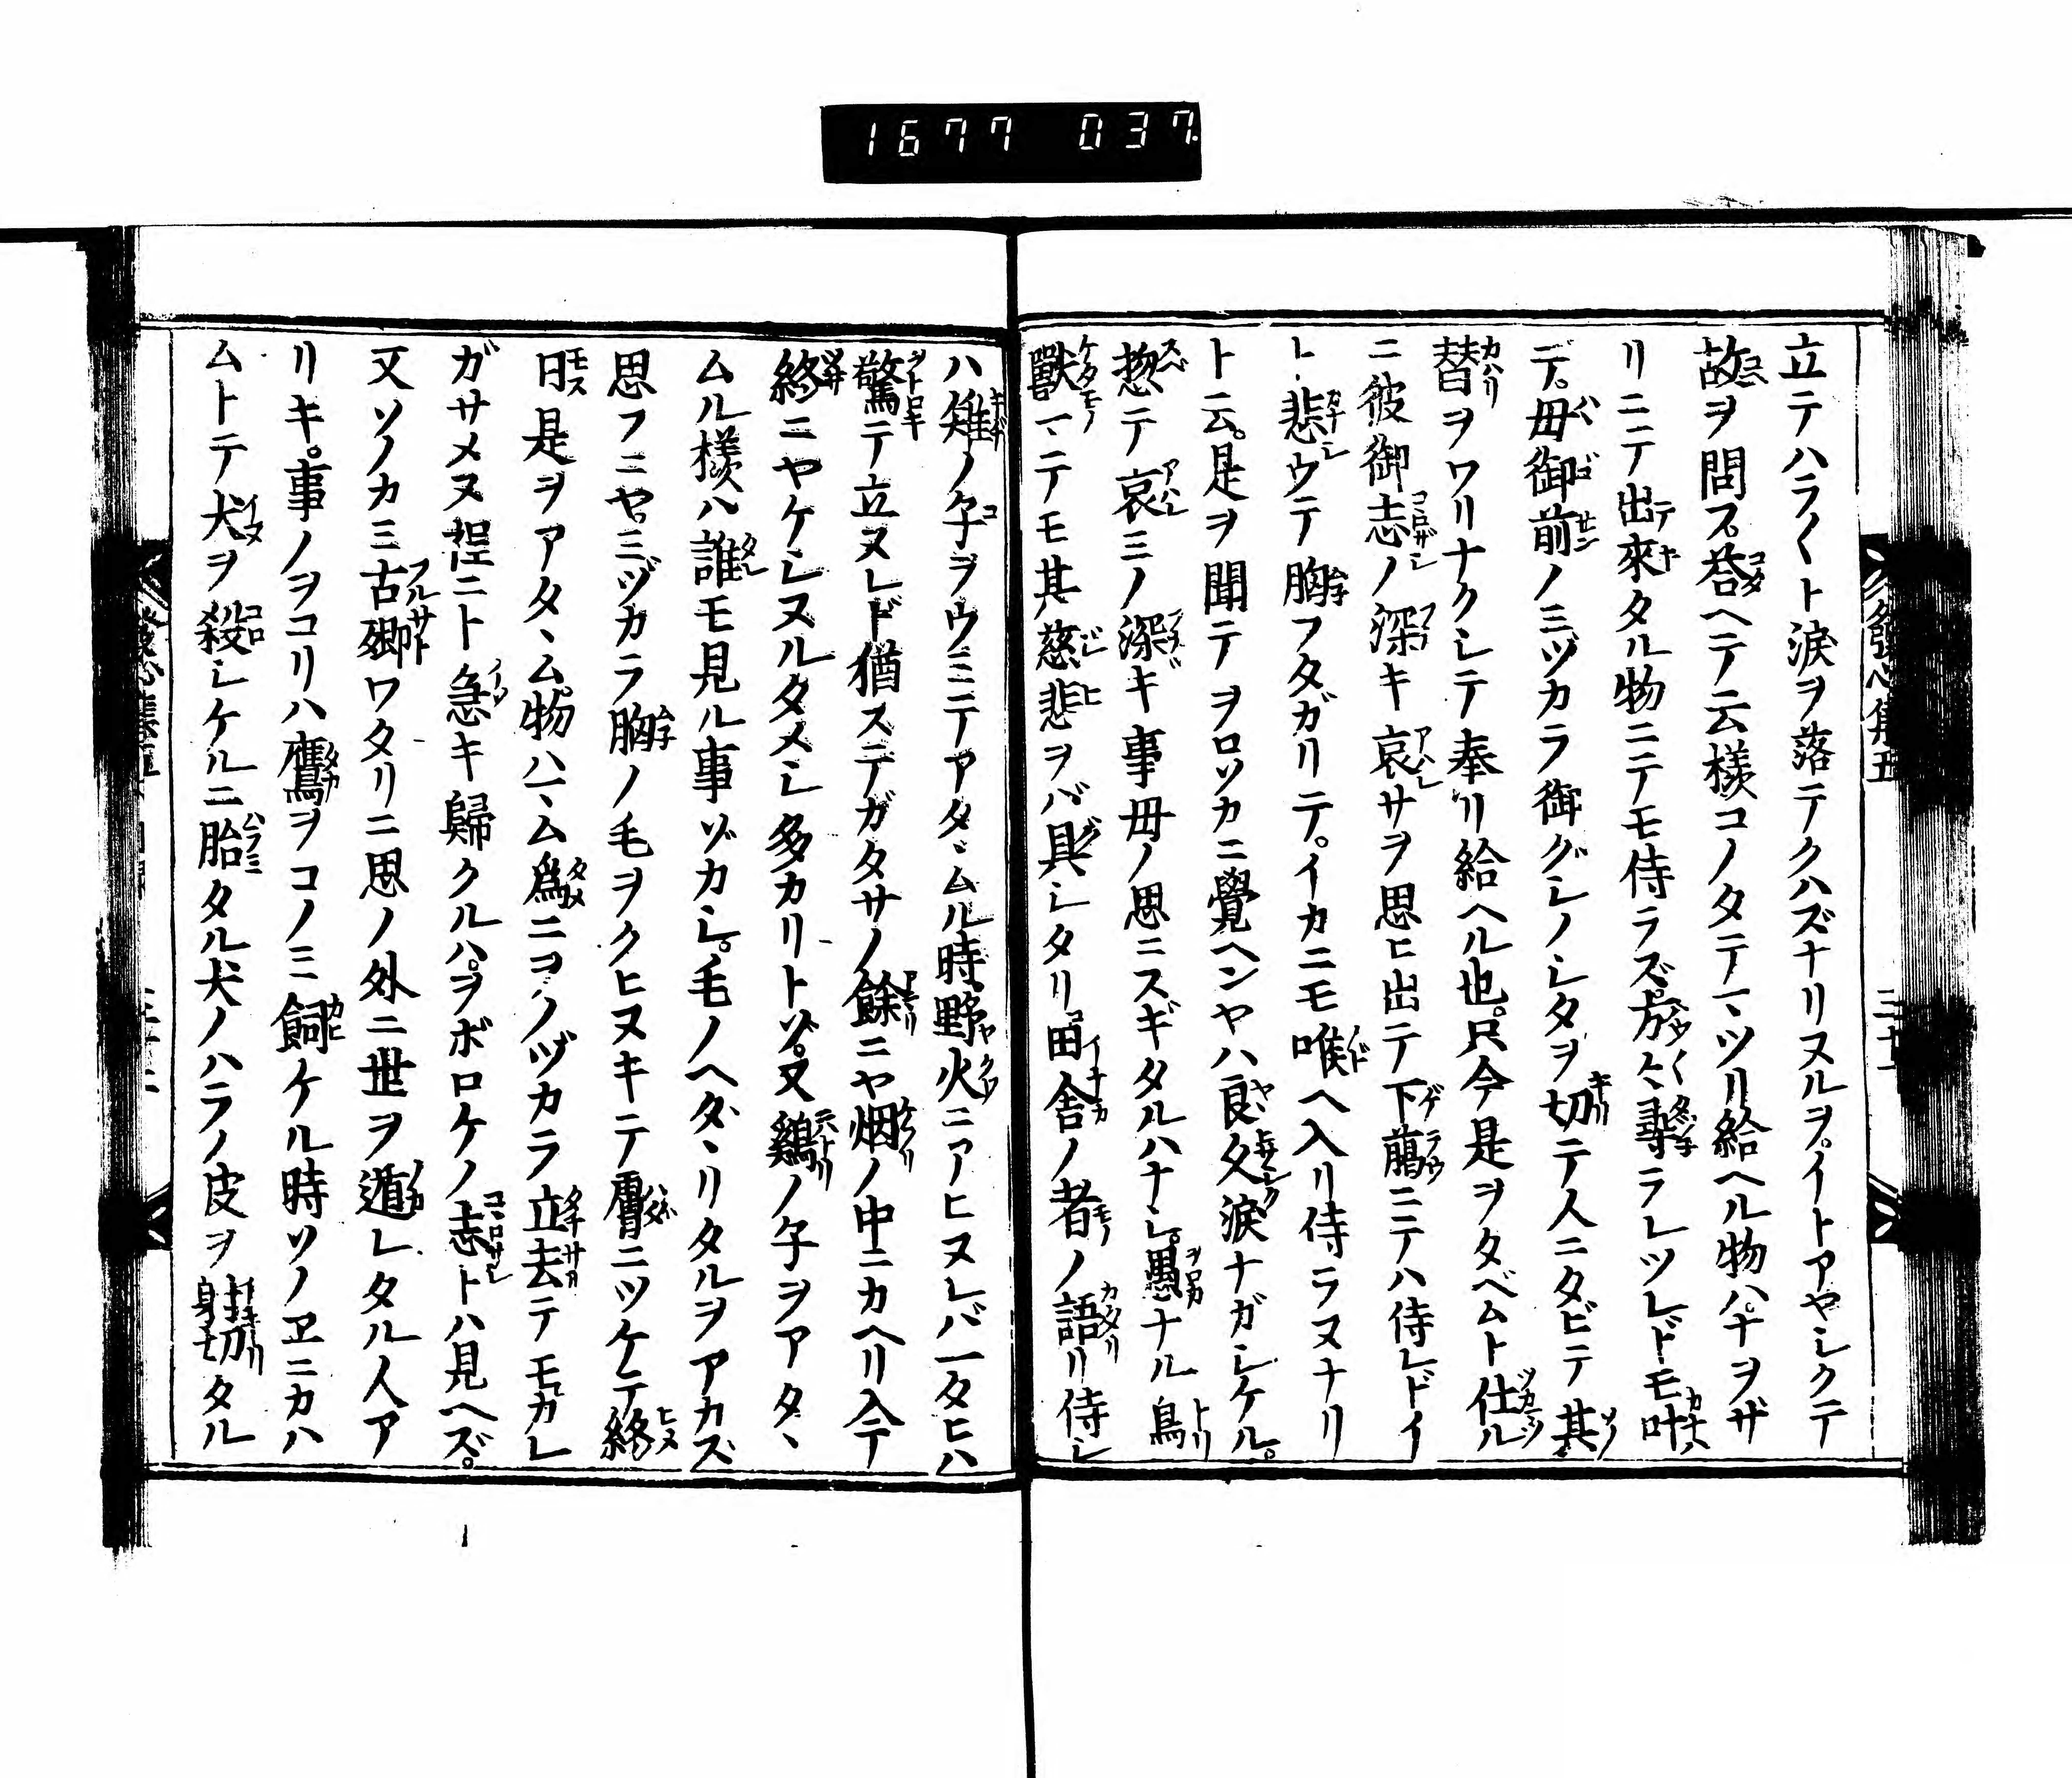 1677 037
立テハラ〱ト涙ヲ落テクハズナリヌルヲ。イトアヤシクテ
故ヲ問ス。荅ヘテ云様コノタテマツリ給ヘル物ハ。ナヲザ
リニテ出來タル物ニテモ侍ラズ。方〻尋ラレツレドモ叶
デ。母御前ノミヅカラ御グシノシタヲ切テ人ニタビテ其
替ヲワリナクシテ奉リ給ヘル也。只今是ヲタベムト仕ル
ニ彼御志ノ深キ哀サヲ思ヒ出テ下﨟ニテハ侍レドイ
ト悲ウテ胸フタガリテ。イカニモ喉ヘ入リ侍ラヌナリ
ト云。是ヲ聞テヲロソカニ覺ヘンヤハ良久涙ナガシケル。
惣テ哀ミノ深キ事母ノ思ニスギタルハナシ。愚ナル鳥
獸マテモ其慈悲ヲバ具シタリ田舎ノ者ノ語リ侍シ
ハ雉ノ子ヲウミテアタヽムル時野火ニアヒヌレバ一タヒハ
驚テ立ヌレド猶ステガタサノ餘ニヤ烟ノ中ニカヘリ入テ
終ニヤケシヌルタメシ多カリトゾ。又鷄ノ子ヲアタヽ
ムル様ハ誰モ見ル事ゾカシ。毛ノヘダヽリタルヲアカズ
思フニヤ。ミヅカラ胸ノ毛ヲクヒヌキテ膚ニツケテ終
日是ヲアタヽム。物ハヽム爲ニヲノヅカラ立去テモカレ
ガサメヌ程ニト急キ歸クルハ。ヲボロケノ志トハ見ヘズ。
又ソノカミ古郷ワタリニ思ノ外ニ世ヲ遁レタル人ア
リキ。事ノヲコリハ鷹ヲコノミ飼ケル時ソノヱニカハ
ムトテ犬ヲ殺シケルニ胎タル犬ノハラノ皮ヲ射切タル